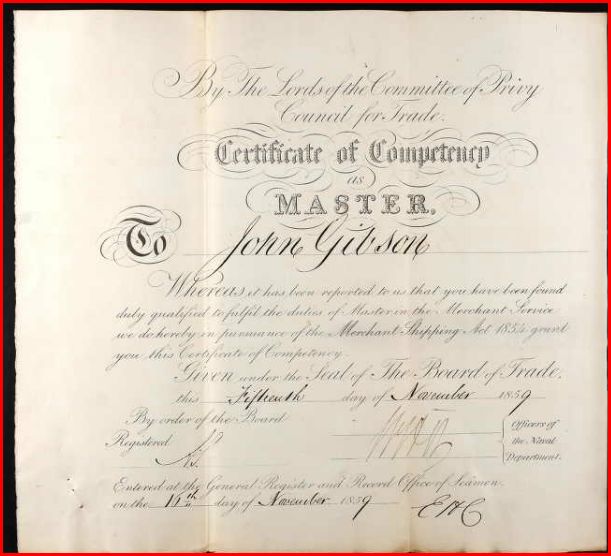 By The Lords of the Committee of Privy
Council for Trade.
Certificate of Competency
as
MASTER.
To John Gibson
Whereas it has been reported to us that you have been found
duly qualified to fulfil the duties of Master in the Merchant Service
we do hereby in pursuance of the Merchant Shipping Act 1854 grant
you this Certificate of Competency.
Given under the Seal of The Board of Trade.
this Fifteenth day of November 1859
By order of the Board
Registered
Officers of
the Naval
Department.
Entered at the General Register and Record Office of Seamen
on the day of November 1859